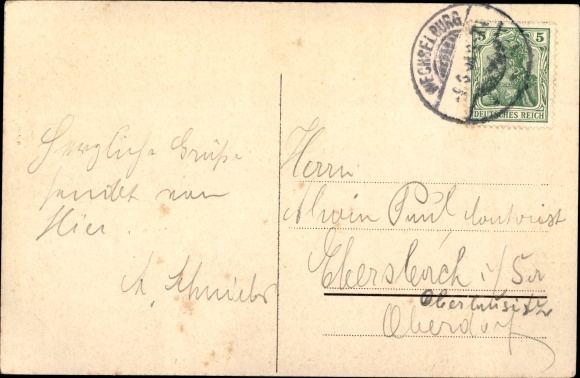 Herzliche Grüße
sendet von
Hier.
A. Schnieber
WECHSELBURG
5 5
DEUTSCHES REICH
Herrn
Alwin Paul Kontorist
Ebersbach i/Sa
Oberlausitz
Oberdorf